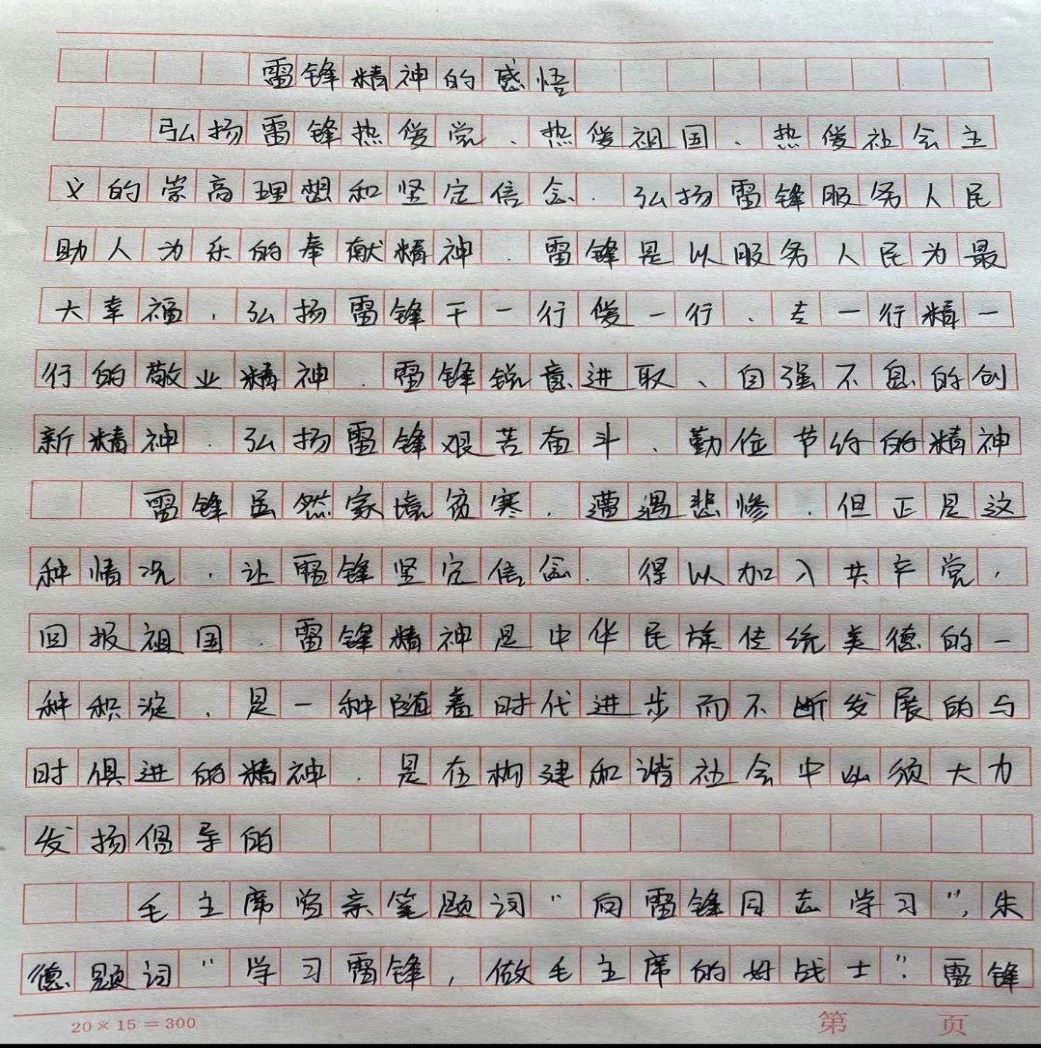 雷锋精神的感悟
弘扬雷锋热爱党、热爱祖国、热爱社会主
义的崇高理想和坚定信念.弘扬雷锋服务人民
助人为乐的奉献精神.雷锋是以服务人民为最
大幸福,弘扬雷锋干一行爱一行、专一行精一
行的敬业精神.雷锋锐意进取、自强不息的创
新精神.弘扬雷锋艰苦奋斗、勤俭节约的精神
雷锋虽然家境贫寒,遭遇悲惨.但正是这
种情况,让雷锋坚定信念.得以加入共产党,
回报祖国.雷锋精神是中华民族传统美德的一
种积淀,是一种随着时代进步而不断发展的与
时俱进的精神.是在构建和谐社会中必须大力
发扬倡导的
毛主席曾亲笔题词“向雷锋同志学习”,朱
德题词“学习雷锋,做毛主席的好战士”.雷锋
20×15=300
第 页